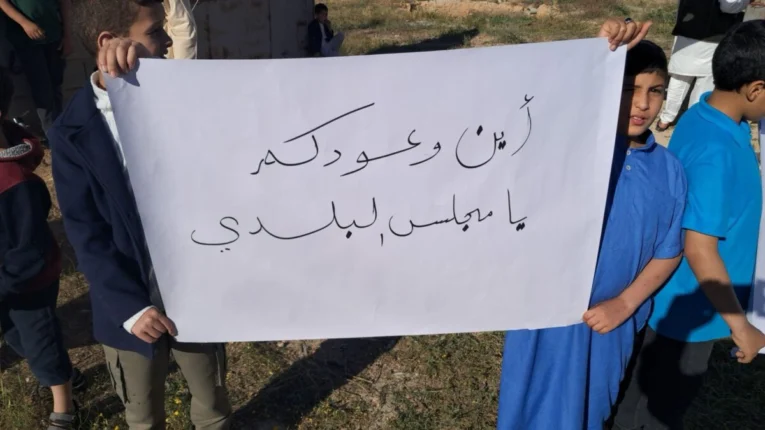 أين وعودكم
يا مجلس البلدي